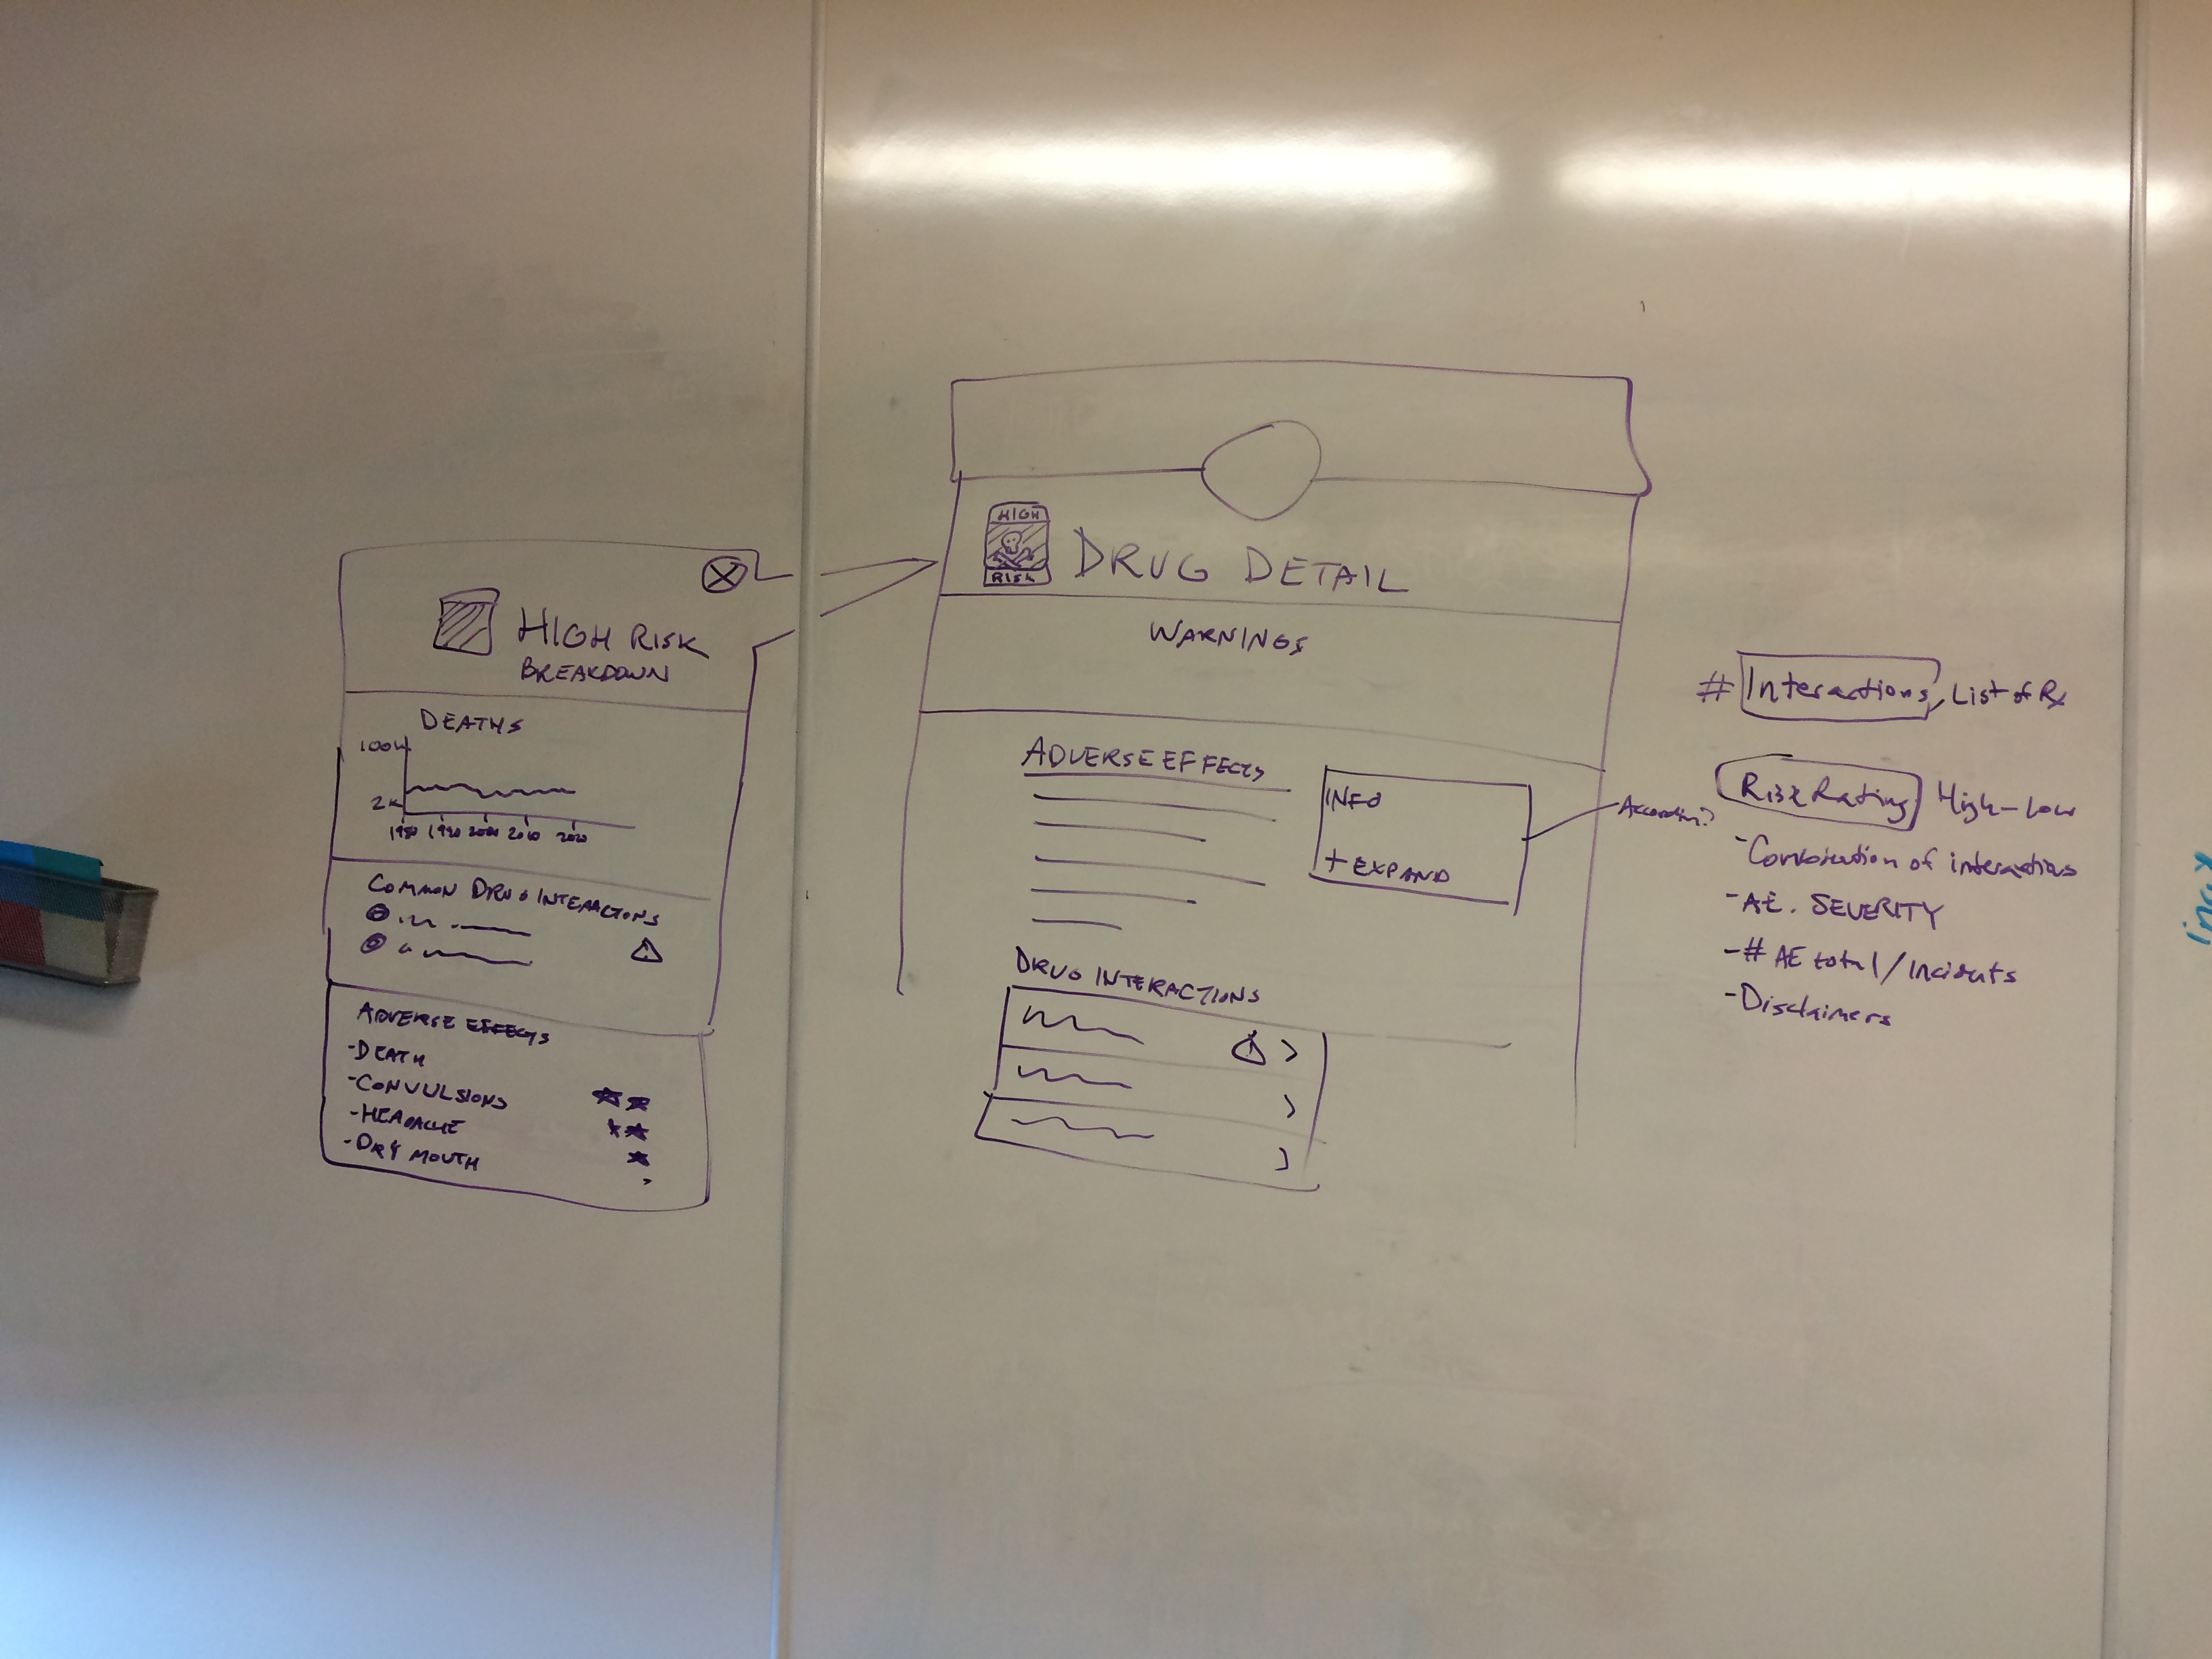 HIGH RISK
BREAKDOWN
DEATHS
100K
2K
1980 1990 2000 2010 2020
COMMON DRUG INTERACTIONS
ADVERSE EFFECTS
-DEATH
-CONVULSIONS
-HEADACHE
-DRY MOUTH
HIGH
RISK
DRUG DETAIL
WARNINGS
ADVERSE EFFECTS
INFO
+ EXPAND
Accordion?
DRUG INTERACTIONS
# Interactions, List of Rx
Risk Rating High-Low
-Combination of interactions
-AE. SEVERITY
-# AE total/Incidents
-Disclaimers